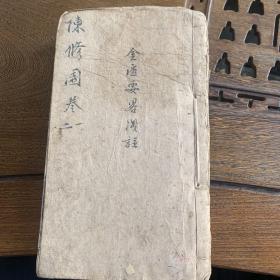 陳修園卷一二
金匱要畧淺註